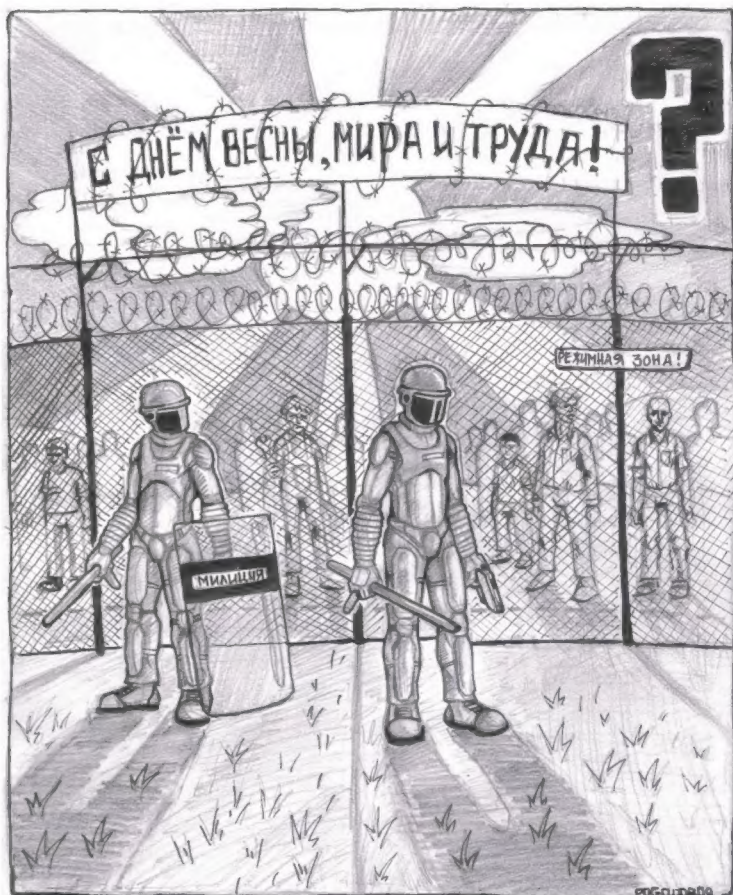 С ДНЁМ ВЕСНЫ, МИРА И ТРУДА!
?
РЕЖИМНАЯ ЗОНА!
МИЛИЦИЯ